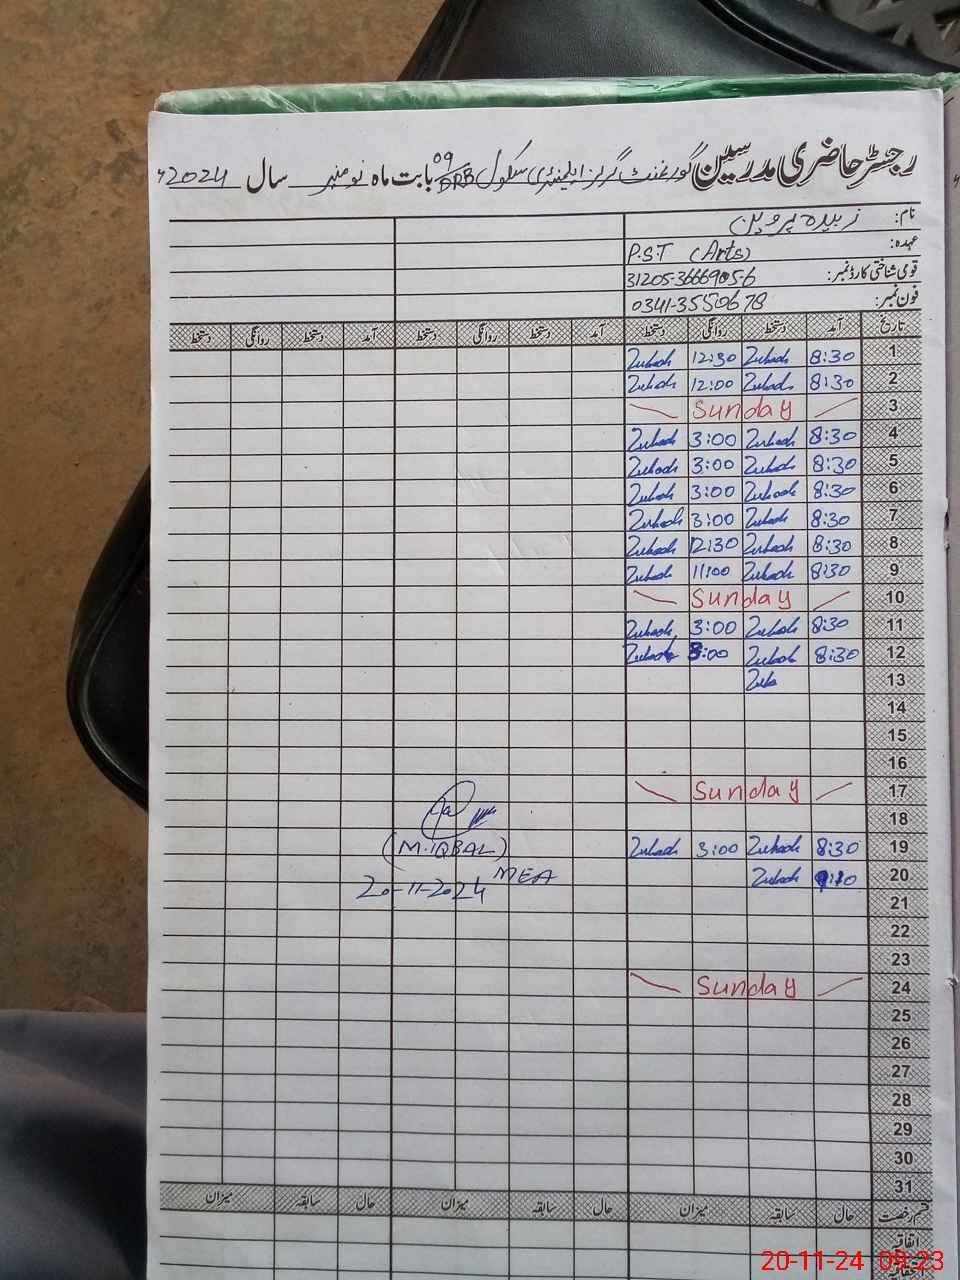 رجسٹر حاضری مدرسین گورنمنٹ گرلز ایلیمنٹری سکول 09/DRB بابت ماہ نومبر سال 2024ء
نام: زبیدہ پروین
عہدہ: P.S.T (Arts)
قومی شناختی کارڈ نمبر: 31205-3666905-6
فون نمبر: 0341-3550678
تاریخ آمد دستخط روانگی دستخط آمد دستخط روانگی دستخط آمد دستخط روانگی دستخط
1 8:30 Zubach 12:30 Zubach
2 8:30 Zubach 12:00 Zubach
3 Sunday
4 8:30 Zubach 3:00 Zubach
5 8:30 Zubach 3:00 Zubach
6 8:30 Zubach 3:00 Zubach
7 8:30 Zubach 3:00 Zubach
8 8:30 Zubach 12:30 Zubach
9 8:30 Zubach 11:00 Zubach
10 Sunday
11 8:30 Zubach 3:00 Zubach
12 8:30 Zubach 3:00 Zubach
13 Zub
14
15
16
17 Sunday
18
19 8:30 Zubach 3:00 Zubach
(M.IQBAL)
20 Zubach
MEA
20-11-2024
21
22
23
24 Sunday
25
26
27
28
29
30
31
قسم رخصت حال سابقہ میزان حال سابقہ میزان حال سابقہ میزان
اتفاقیہ
20-11-24 09:23